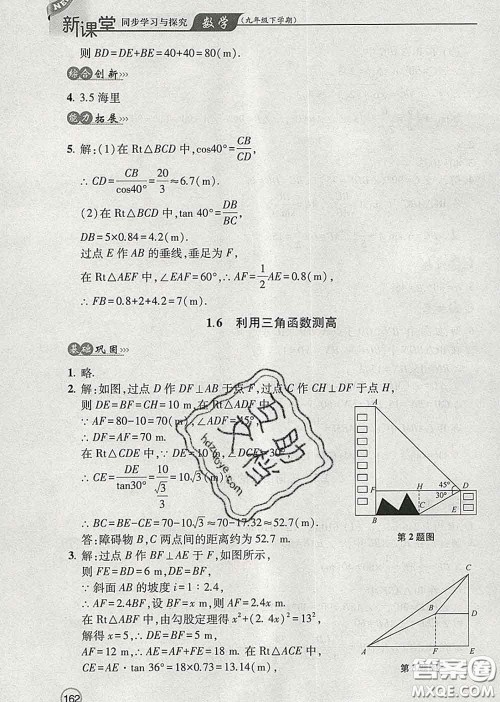 新课堂 同步学习与探究 数学 (九年级下学期)
则 BD=DE+BE=40+40=80(m).
综合创新
4. 3.5 海里
能力拓展
5. 解:(1)在 Rt△BCD 中,cos40°=CB/CD,
∴ CD=CB/cos40°=20/3≈6.7(m).
(2)在 Rt△BCD 中,tan 40°=DB/BC,
DB=5×0.84=4.2(m).
过点 E 作 AB 的垂线,垂足为 F,
在 Rt△AEF 中,∠EAF=60°,∴ AF=1/2 AE=0.8(m).
∴ FB=0.8+4.2+2=7(m).
1.6 利用三角函数测高
基础巩固
1. 略.
2. 解:如图,过点 D 作 DF⊥AB 于点 F,过点 C 作 CH⊥DF 于点 H,
则 DE=BF=CH=10 m,在 Rt△ADF 中,
∵ AF=80-10=70(m),∠ADF=45°,
∴ DF=AF=70 m.
在 Rt△CDE 中,∵ DE=10 m,∠DCE=30°,
∴ CE=DE/tan30°=10/(√3/3)=10√3(m).
∴ BC=BE-CE=70-10√3≈70-17.32≈52.7(m).
答:障碍物 B,C 两点间的距离约为 52.7 m.
3. 解:过点 B 作 BF⊥AE 于点 F,如图所示,
则 FE=BD=6 m,
∵ 斜面 AB 的坡度 i=1:2.4,
∴ AF=2.4BF,设 BF=x m,则 AF=2.4x m.
在 Rt△ABF 中,由勾股定理得 x²+(2.4x)²=13²,
解得 x=5,∴ DE=BF=5 m,
AF=12 m,∴ AE=AF+FE=18 m. 在 Rt△ACE 中,
CE=AE·tan 36°=18×0.73=13.14(m),
A
45°
30°
F
H
D
B
C
E
第 2 题图
C
B
D
A
F
E
互助文档
hdzuoye.com
162
答案圈
MXQE.COM